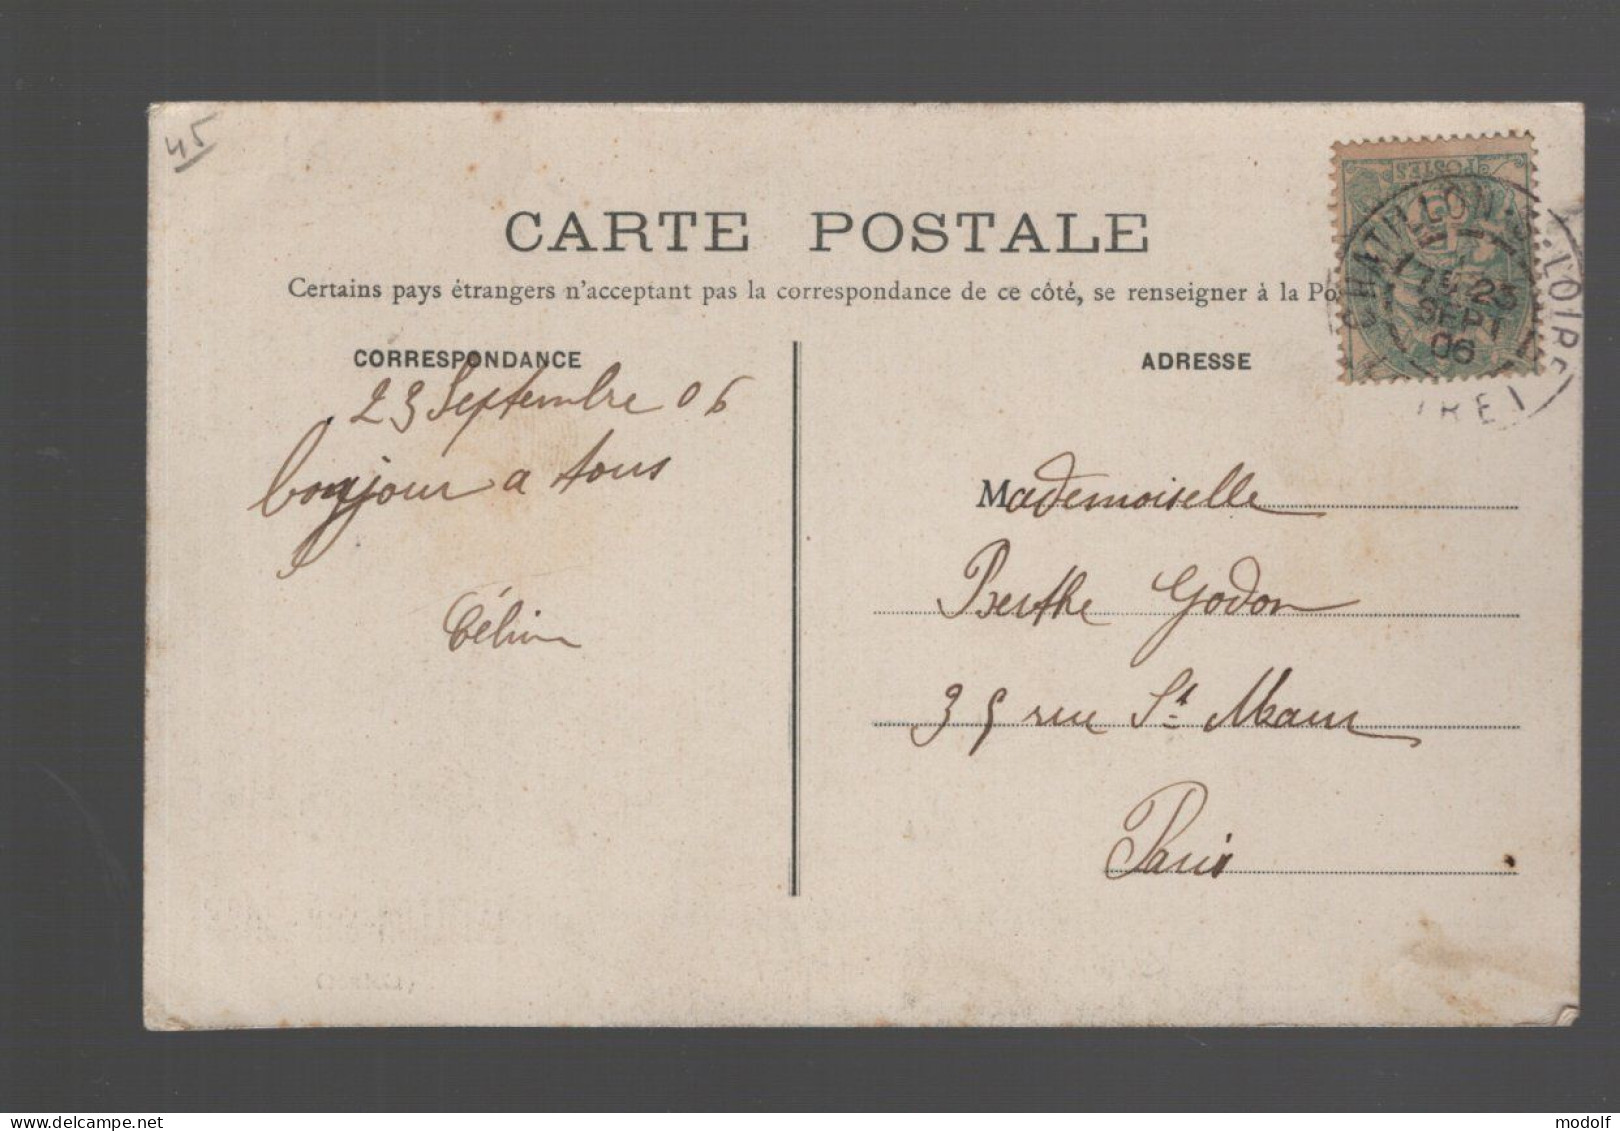 45
CARTE POSTALE
Certains pays étrangers n'acceptant pas la correspondance de ce côté, se renseigner à la Po
CORRESPONDANCE
23 Septembre 06
bonjour a tous
Célin
ADRESSE
POSTES
CHATILLON-S-LOIRE
23
SEPT
06
Mademoiselle
Berthe Godon
35 rue St Maur
Paris
www.delcampe.net
modolf